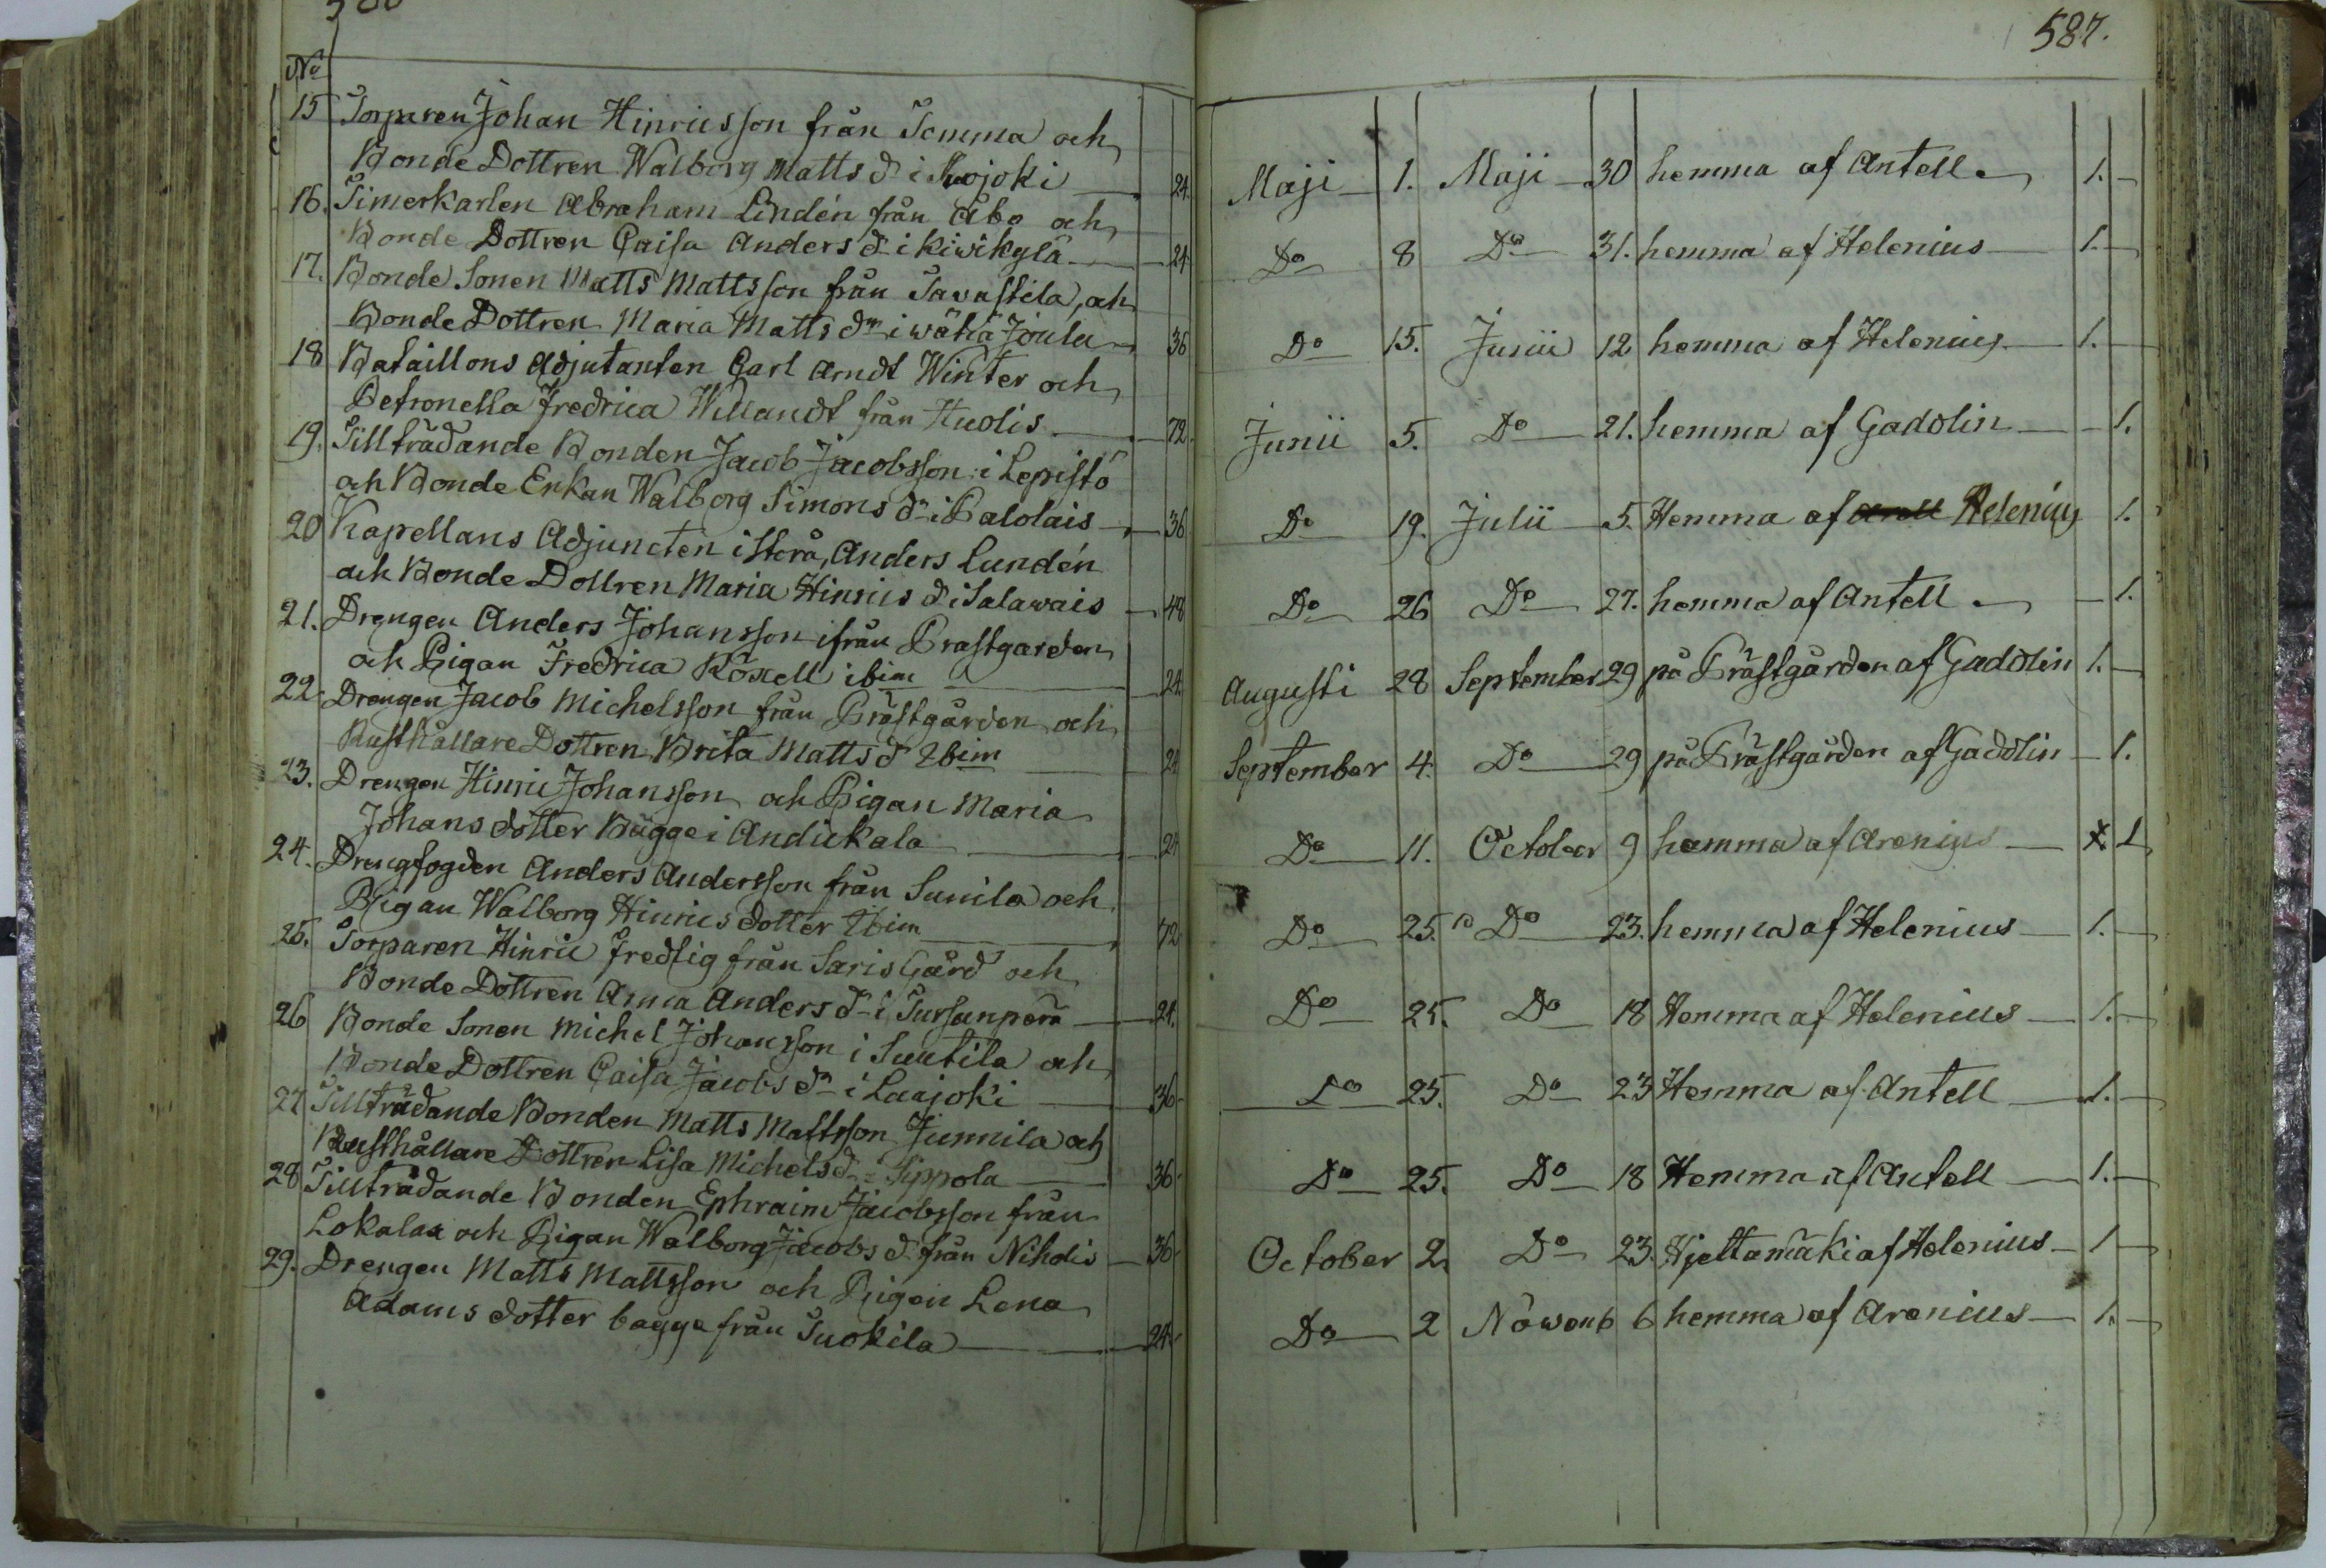 No
15 Torparen Johan Hinricsson från Tomma och
Bonde Dottren Walborg Matts d i Kuojoki 24.
16. Timerkarlen Abraham Lindén från Åbo och
Bonde Dottren Caisa Anders d i Kiwikylä 24
17. Bonde Sonen Matts Mattsson från Tavastila, och
Bonde Dottren Maria Matts dr i wähä Joulu 36
18 Bataillons Adjutanten Carl Arndt Winter och
Petronella Fredrica Willandt från Huolis 72
19. Tillträdande Bonden Jacob Jacobsson i Lepistö
och Bonde Enkan Walborg Simons dr i Palolais 36
20 Kapellans Adjuncten i Storå, Anders Lundén
och Bonde Dottren Maria Hinrics d i Salawais 48
21. Drengen Anders Johansson ifrån Prastgarden
och Pigan Fredrica Röxell ibim 24.
22 Drengen Jacob Michelsson från Prästgården och
Rusthållare Dottren Brita Matts d ibim 24
23. Drengen Hinric Johansson och Pigan Maria
Johans dotter Bagge i Andickala 24
24. Drengfogden Anders Andersson från Sunila och
Pigan Walborg Hinrics dotter ibim 72
25. Torparen Hinric Fredlig från Saris Gård och
Bonde Dottren Anna Anders d i Tursunperä 24.
26 Bonde Sonen Michel Johansson i Suutila och
Bonde Dottren Caisa Jacobs dr i Laajoki 36
27 Tillträdande Bonden Matts Mattsson Junnila och
Rusthållare Dottren Lisa Michels d i Sippola 36
28 Tillträdande Bonden Ephraim Jacobsson från
Lokalax och Pigan Walborg Jacobs d från Nihdis 36
29. Drengen Matts Mattsson och Pigan Lena
Adams dotter bagge från Tuokila 24
587.
Maji 1. Maji 30 hemma af Antell 1.
Do 8 Do 31. hemma af Helenius 1.
Do 15. Junii 12 hemma af Helenius 1.
Junii 5. Do 21. hemma af Gadolin 1.
Do 19. Julii 5. Hemma af Helenius 1.
Do 26 Do 27. hemma af Antell 1.
Augusti 28 September 29 på Prästgården af Gadolin 1.
September 4. Do 29 på Prästgården af Gadolin 1.
Do 11. October 9 hemma af Arenius 1
Do 25. Do 23. hemma af Helenius 1.
Do 25. Do 18 Hemma af Helenius 1.
Do 25. Do 23 Hemma af Antell 1.
Do 25. Do 18 Hemma af Antell 1.
October 2. Do 23. Hjeltamäki af Helenius 1
Do 2 Nowemb 6 hemma af Arenius 1.